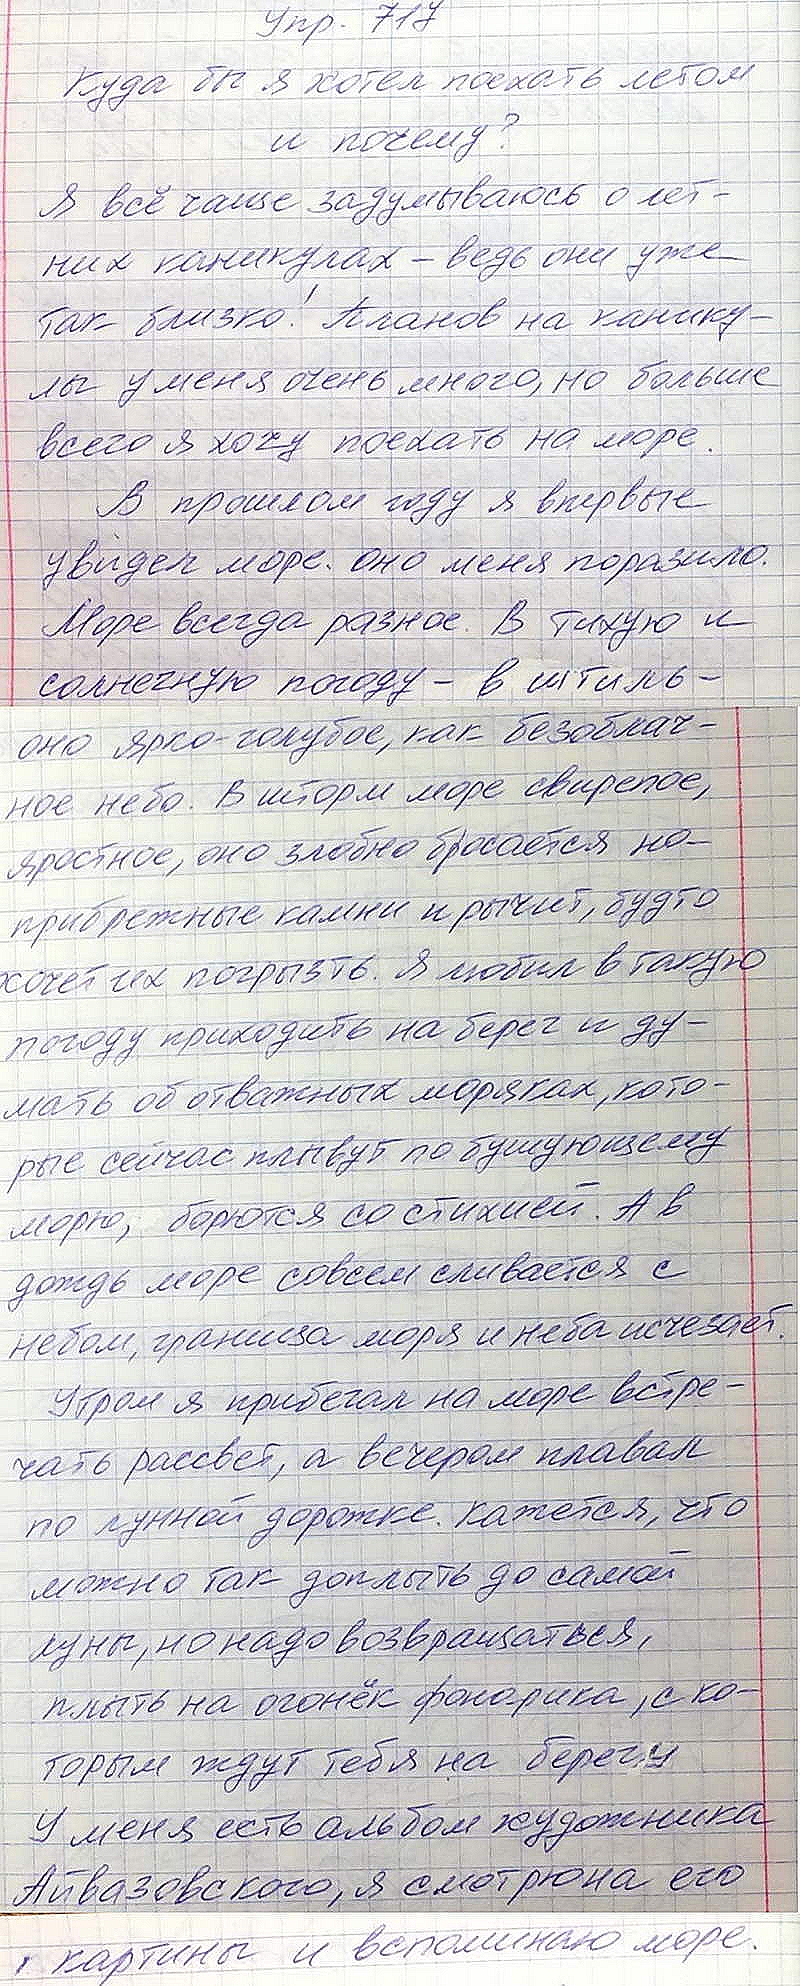 Упр. 717
Куда бы я хотел поехать летом
и почему?
Я всё чаще задумываюсь о лет-
них каникулах - ведь они уже
так близко! Планов на канику-
лы у меня очень много, но больше
всего я хочу поехать на море.
В прошлом году я впервые
увидел море. оно меня поразило.
Море всегда разное. В тихую и
солнечную погоду - в штиль -
оно ярко-голубое, как безоблач-
ное небо. В шторм море свирепое,
яростное, оно злобно бросается на
прибрежные камни и рычит, будто
хочет их погрызть. Я любил в такую
погоду приходить на берег и ду-
мать об отважных моряках, кото-
рые сейчас плывут по бушующему
морю, борются со стихией. А в
дождь море совсем сливается с
небом, граница моря и неба исчезает.
Утром я прибегал на море встре-
чать рассвет, а вечером плавал
по лунной дорожке. Кажется, что
можно так доплыть до самой
луны, но надо возвращаться,
плыть на огонёк фонарика, с ко-
торым ждут тебя на берегу
У меня есть альбом художника
Айвазовского, я смотрю на его
картины и вспоминаю море.